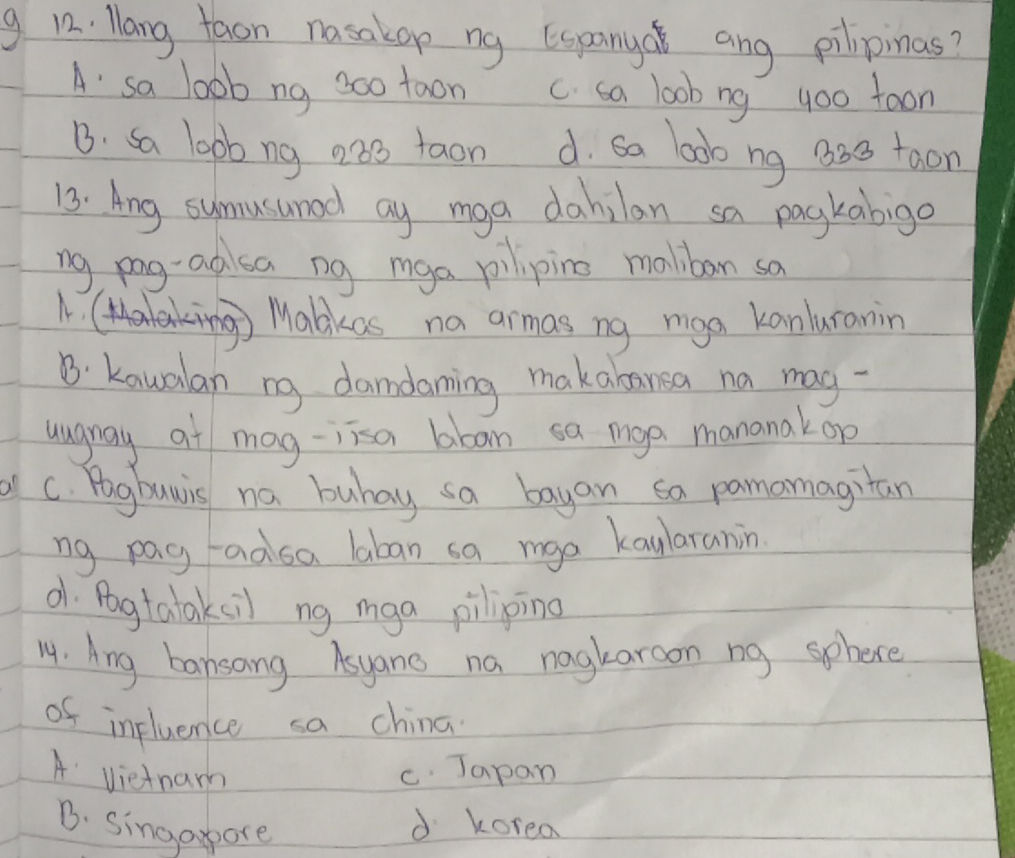 g 12. Ilang taon nasakop ng Espanya ang pilipinas?
A. sa loob ng 300 taon C. sa loob ng 400 taon
B. sa loob ng 233 taon d. sa loob ng 333 taon
13. Ang sumusunod ay mga dahilan sa pagkabigo
ng pag-aalsa ng mga pilipino maliban sa
A. (Malaking) Malakas na armas ng mga kanluranin
B. kawalan ng damdaming makabansa na mag-
uugnay at mag-iisa laban sa mga mananakop
a C. Pagbuwis na buhay sa bayan sa pamamagitan
ng pag-aalsa laban sa mga kaylaranin.
d. Pagtataksil ng mga pilipino
14. Ang bansang Asyano na nagkaroon ng sphere
of influence sa china.
A. Vietnam C. Japan
B. Singapore d. korea